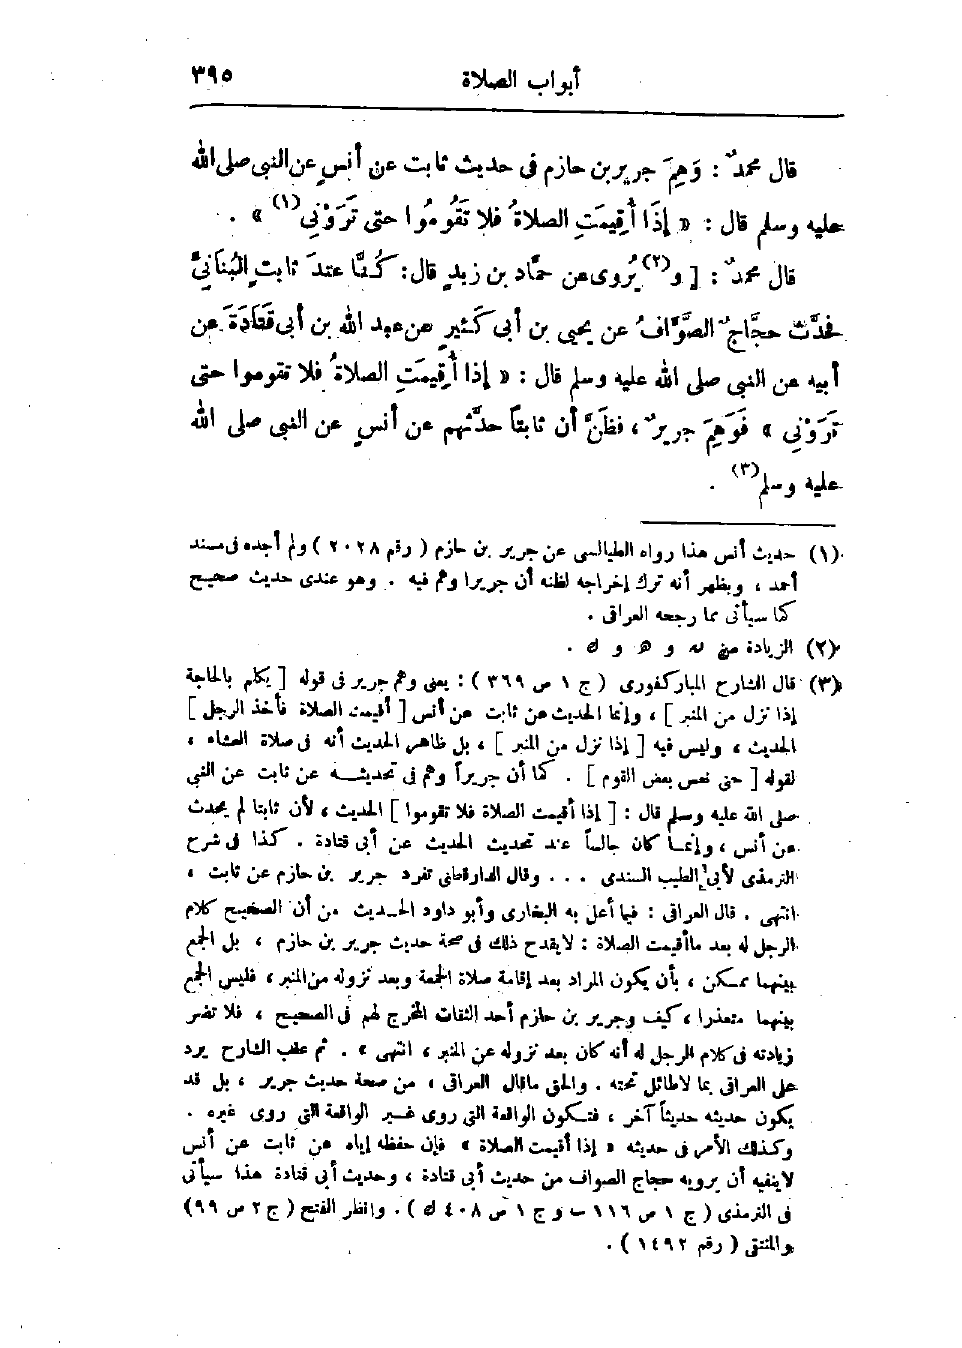 أبواب الصلاة ٣٩٥
قال محمدٌ : وَهِمَ جرير بن حازم فى حديث ثابت عن أنسٍ عن النبى صلى الله
عليه وسلم قال : « إِذَا أُقِيمَتِ الصلاةُ فلا تَقُومُوا حتى تَرَوْنِي (١) » .
قال محمدٌ : [ و (٢) ] يُروى عن حمَّاد بن زيدٍ قال : كُنَّا عند ثابتٍ البُنَانِيِّ
فحدَّث حجَّاجٌ الصَّوَّافُ عن يحيى بن أبى كَثيرٍ عن عبد الله بن أبى قَتَادَةَ عن
أبيه عن النبى صلى الله عليه وسلم قال : « إذا أُقِيمَتِ الصلاةُ فلا تقوموا حتى
تَرَوْنِي » فَوَهِمَ جريرٌ ، فظَنَّ أن ثابتاً حدَّثهم عن أنسٍ عن النبى صلى الله
عليه وسلم (٣) .
(١) حديث أنس هذا رواه الطيالسى عن جرير بن حازم ( رقم ٢٠٢٨ ) ولم أجده فى مسند
أحمد ، ويظهر أنه ترك إخراجه لظنه أن جريرا وهم فيه . وهو عندى حديث صحيح
كما سيأتى مما رجحه العراقى .
(٢) الزيادة من نه و ه و ك .
(٣) قال الشارح المباركفورى ( ج ١ ص ٣٦٩ ) : يعنى وهم جرير فى قوله [ يكلم بالحاجة
إذا نزل من المنبر ] ، وإنما الحديث عن ثابت عن أنس [ أقيمت الصلاة فأخذ الرجل ]
الحديث ، وليس فيه [ إذا نزل من المنبر ] ، بل ظاهر الحديث أنه فى صلاة العشاء ،
لقوله [ حتى نعس بعض القوم ] . كما أن جريراً وهم فى تحديثه عن ثابت عن النبى
صلى الله عليه وسلم قال : [ إذا أقيمت الصلاة فلا تقوموا ] الحديث ، لأن ثابتا لم يحدث
عن أنس ، وإنما كان جالساً عند تحديث الحديث عن أبى قتادة . كذا فى شرح
الترمذى لأبى الطيب السندى . . . وقال الدارقطنى تفرد جرير بن حازم عن ثابت ،
انتهى . قال العراقى : فيما أعل به البخارى وأبو داود الحديث من أن الصحيح كلام
الرجل له بعد ما أقيمت الصلاة : لا يقدح ذلك فى صحة حديث جرير بن حازم ، بل الجمع
بينهما ممكن ، بأن يكون المراد بعد إقامة صلاة الجمعة وبعد نزوله من المنبر ، فليس الجمع
بينهما متعذرا ، كيف وجرير بن حازم أحد الثقات المخرج لهم فى الصحيح ، فلا تضر
زيادته فى كلام الرجل له أنه كان بعد نزوله عن المنبر ، انتهى » . ثم عقب الشارح يرد
على العراقى بما لا طائل تحته . والحق ما قال العراقى ، من صحة حديث جرير ، بل قد
يكون حديثه حديثاً آخر ، فتكون الواقعة التى روى غير الواقعة التى روى غيره .
وكذلك الأمر فى حديثه « إذا أقيمت الصلاة » فإن حفظه إياه عن ثابت عن أنس
لا ينفيه أن يرويه حجاج الصواف من حديث أبى قتادة ، وحديث أبى قتادة هذا سيأتى
فى الترمذى ( ج ١ ص ١١٦ ب و ج ١ ص ٤٠٨ ك ) . وانظر الفتح ( ج ٢ ص ٩٩ )
والمنتقى ( رقم ١٤٩٢ ) .